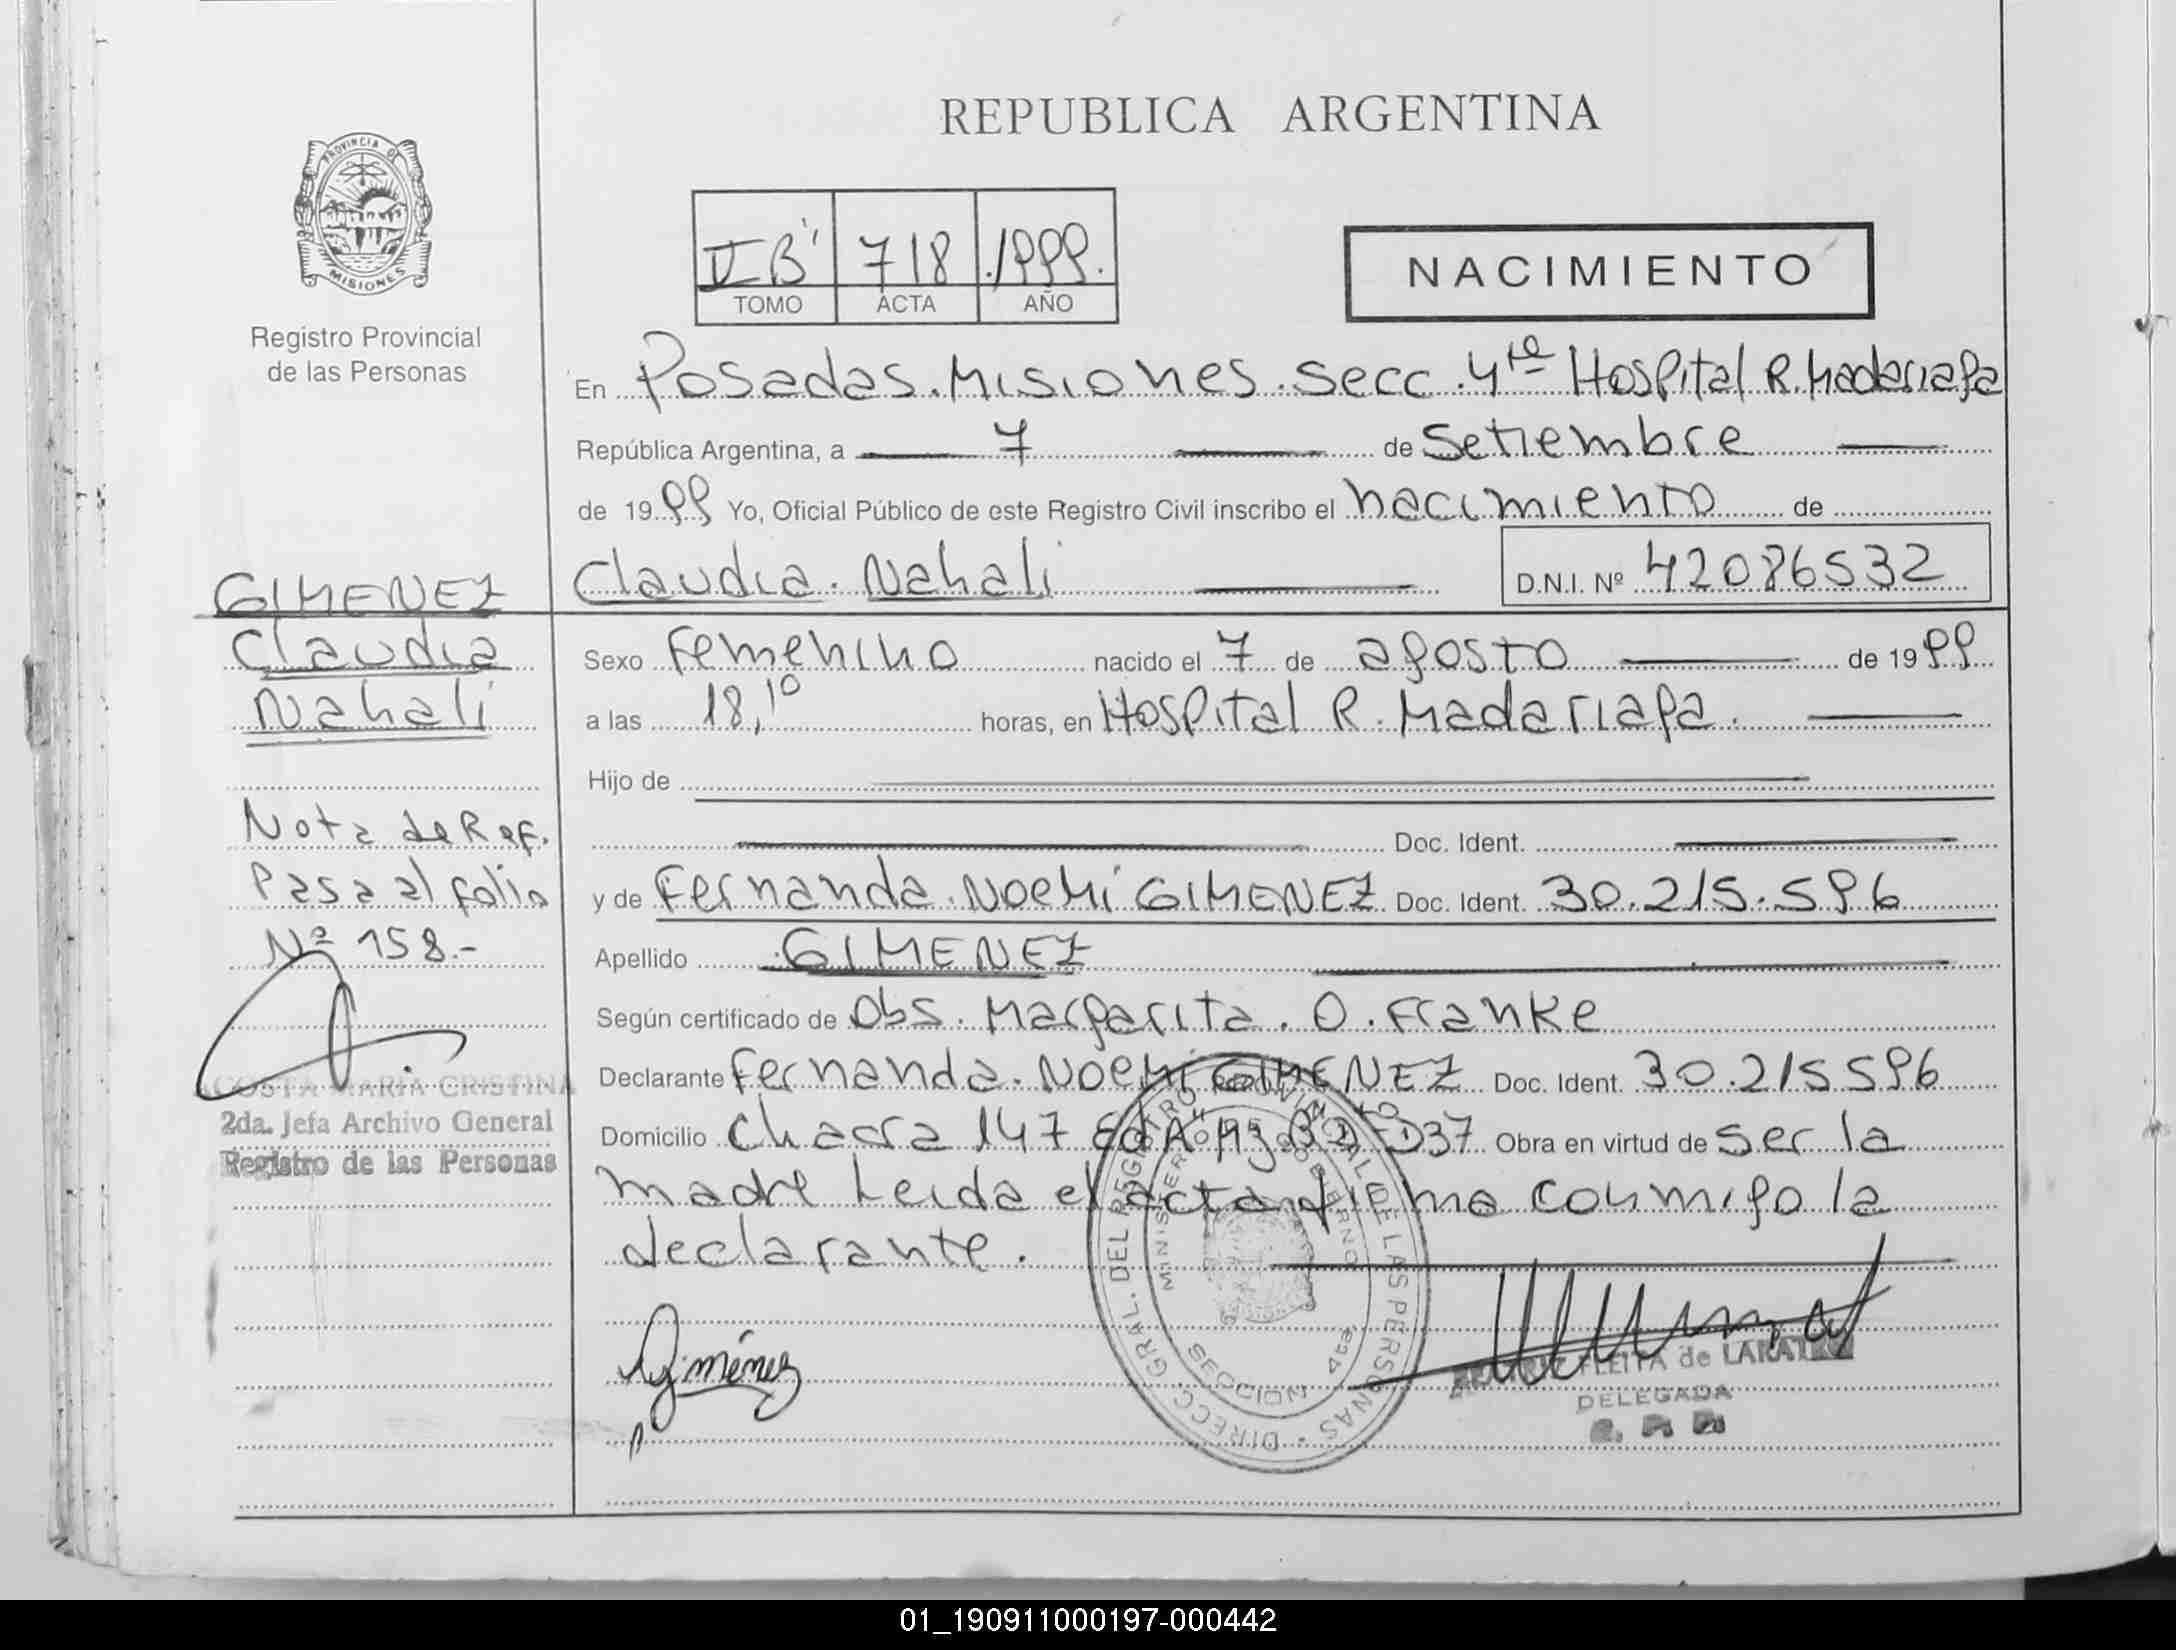 REPUBLICA ARGENTINA
PROVINCIA DE
MISIONES
Registro Provincial
de las Personas
B 718 1999.
TOMO ACTA AÑO
NACIMIENTO
En Posadas. Misiones. Secc. 4ta Hospital R. Madariaga
República Argentina, a 7 de Setiembre
de 1999 Yo, Oficial Público de este Registro Civil inscribo el nacimiento de
Claudia. Nahali D.N.I. Nº 42086532
GIMENEZ
Claudia
Nahali
Sexo Femenino nacido el 7 de agosto de 1999
a las 18,10 horas, en Hospital R. Madariaga.
Hijo de
Doc. Ident.
Nota de Ref.
Pasa al folio
Nº 158.-
y de Fernanda. Noemí GIMENEZ Doc. Ident. 30.215.596
Apellido GIMENEZ
Según certificado de Obs. Margarita. O. Franke
Declarante Fernanda. Noemi GIMENEZ Doc. Ident. 30.215596
COSTA MARIA CRISTINA
2da. Jefa Archivo General
Registro de las Personas
Domicilio Chacra 147 Ed A D37 Obra en virtud de Ser la
madre Leida el acta firma conmigo la
declarante.
DIRECC. GRAL. DEL REGISTRO PROVINCIAL DE LAS PERSONAS
MINISTERIO DE GOBIERNO
SECCION 4ta.
Giménez
FLEITA de
DELEGADA
01_190911000197-000442